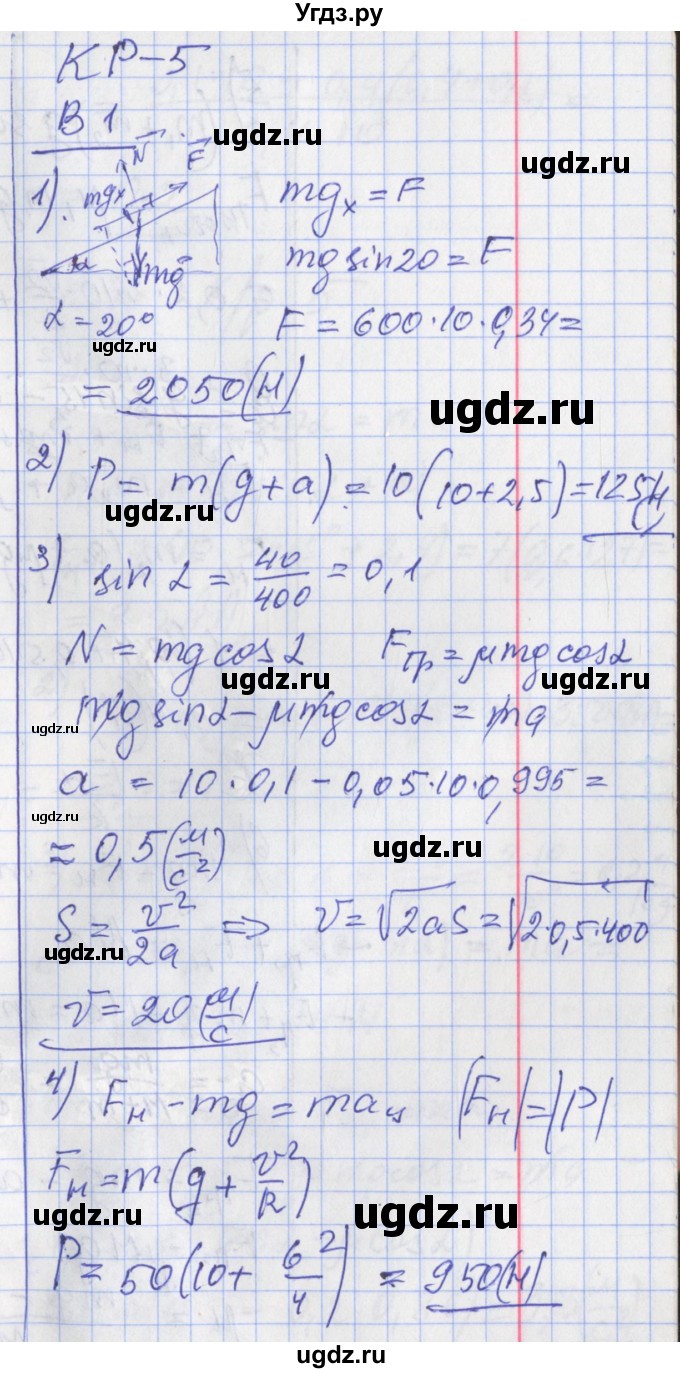 Угдз.ру
КР-5
В 1
ugdz.ru
1). mgₓ N F mgₓ = F
α mg mg sin20 = F
α = 20° F = 600·10·0,34 =
ugdz.ru
= 2050(Н)
ugdz.ru
2) P = m(g+a) = 10(10+2,5) = 125(Н)
ugdz.ru
3) sin α = 40/400 = 0,1
N = mg cos α Fтр = μmg cos α
ugdz.ru ugdz.ru
mg sin α - μmg cos α = ma
ugdz.ru
a = 10·0,1 - 0,05·10·0,995 =
ugdz.ru
≈ 0,5(м/с²)
ugdz.ru
S = v²/2a ⇒ v = √2aS = √2·0,5·400
ugdz.ru
v = 20(м/с)
ugdz.ru
4) Fн - mg = maц |Fн| = |P|
Fн = m(g + v²/R)
ugdz.ru ugdz.ru
P = 50(10 + 6²/4) = 950(Н)
ugdz.ru